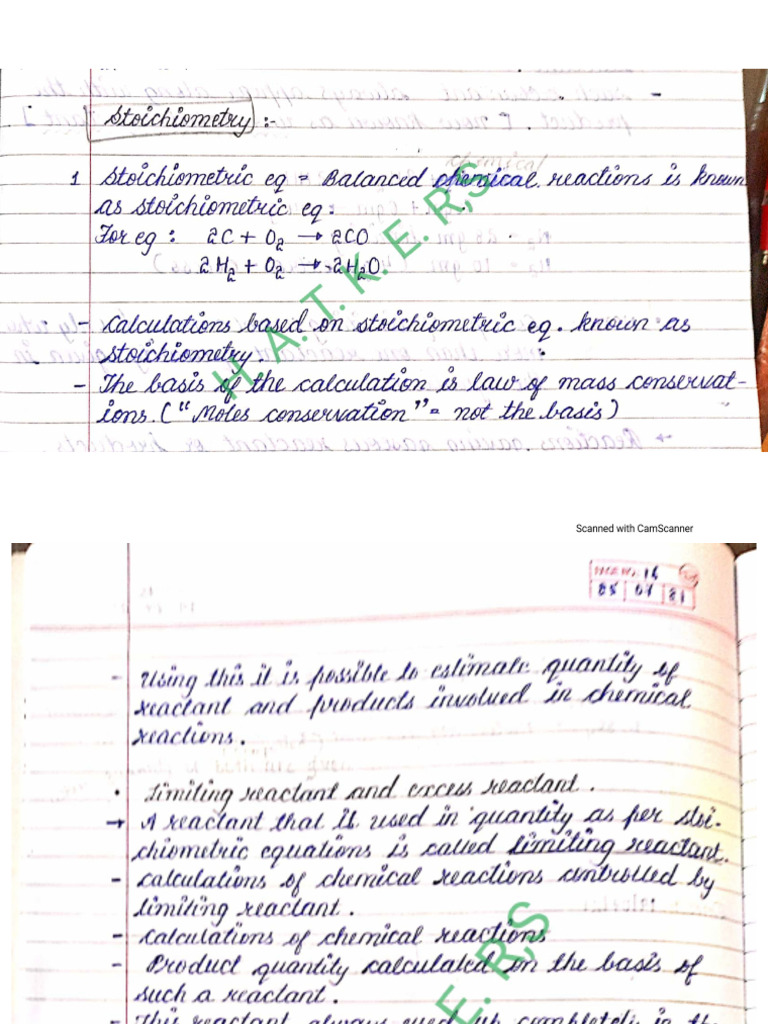 Stoichiometry :-
chemical
1 Stoichiometric eq = Balanced chemical reactions is known
as stoichiometric eq :
For eg : 2C + O₂ → 2CO
2H₂ + O₂ → 2H₂O.
- Calculations based on stoichiometric eq. known as
stoichiometry :
- The basis of the calculation is law of mass conservat-
ions. ("Moles conservation" = not the basis)
H A.T.K.E.R,S
Scanned with CamScanner
16
05 07 21
- Using this it is possible to estimate quantity of
reactant and products involved in chemical
reactions.
• Limiting reactant and excess reactant.
→ A reactant that is used in quantity as per stoi-
chiometric equations is called limiting reactant.
- Calculations of chemical reactions controlled by
limiting reactant.
- Calculations of chemical reactions
- Product quantity calculated on the basis of
such a reactant.
E.R,S
- This reactant always used up completely in